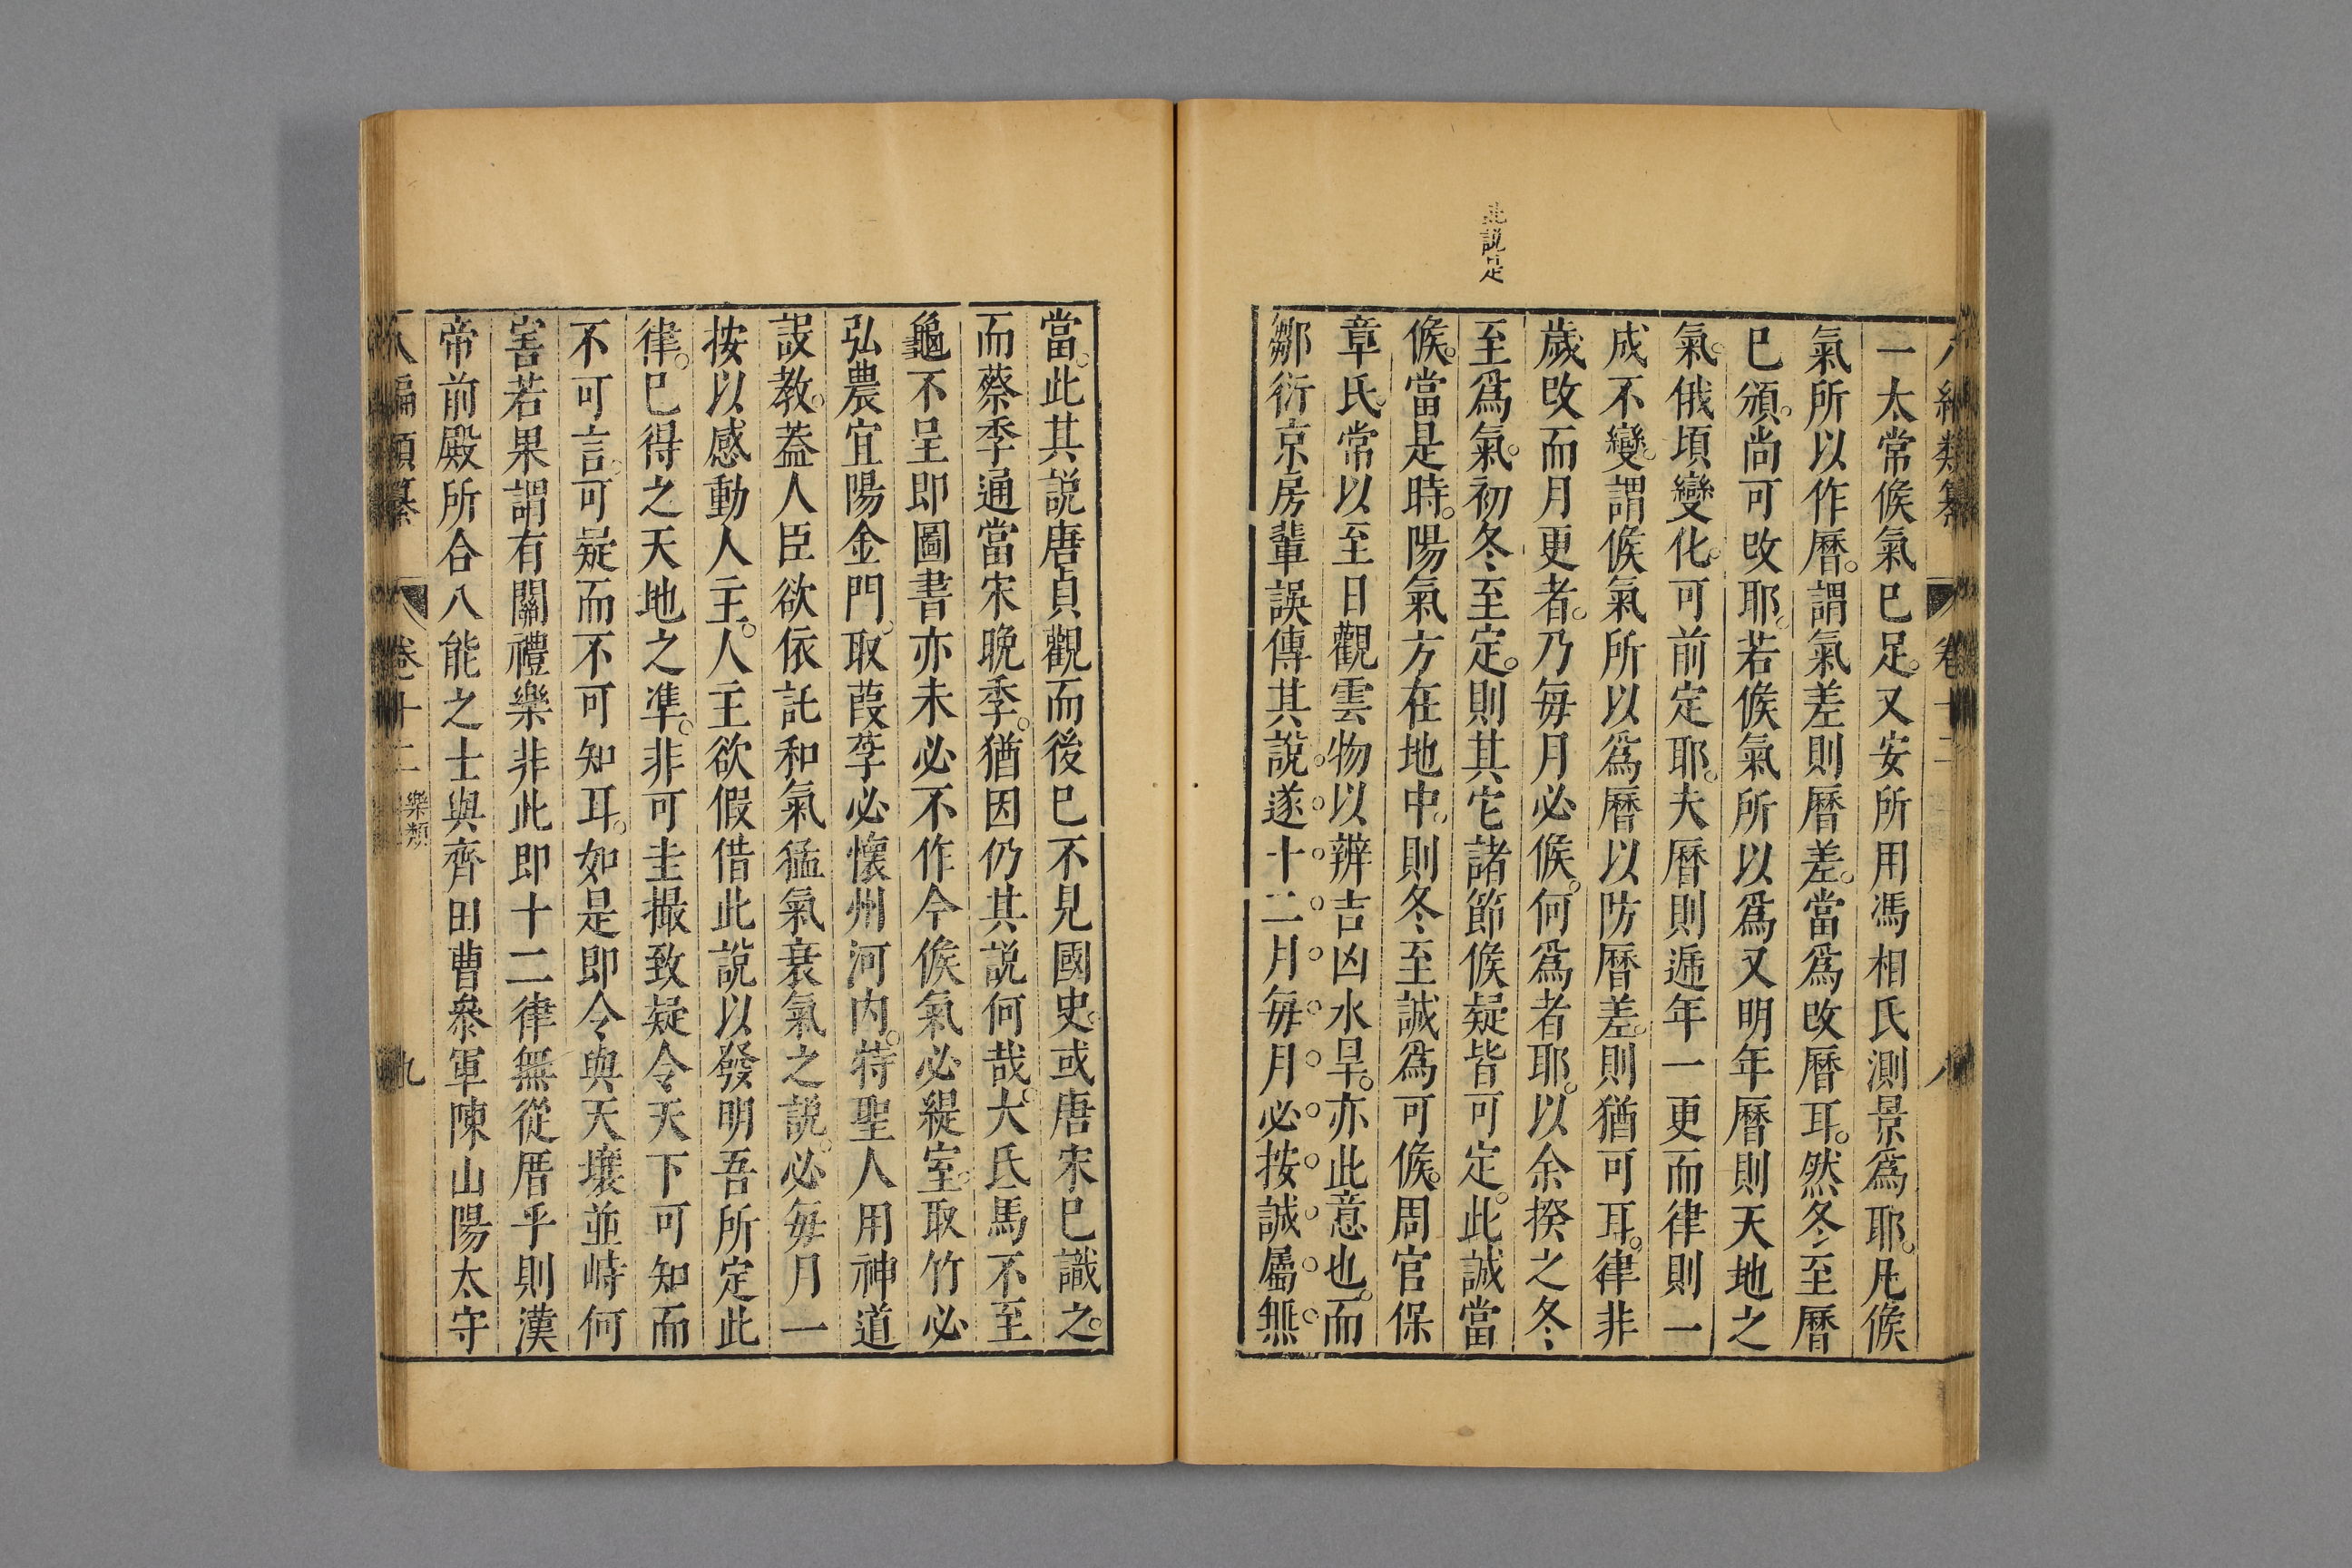 此說是
一太常候氣已足又安所用馮相氏測景爲耶凡候
氣所以作曆謂氣差則曆差當爲改曆耳然冬至曆
已頒尚可改耶若候氣所以爲又明年曆則天地之
氣俄頃變化可前定耶夫曆則遞年一更而律則一
成不變謂候氣所以爲曆以防曆差則猶可耳律非
歲改而月更者乃每月必候何爲者耶以余揆之冬
至爲氣初冬至定則其它諸節候疑皆可定此誠當
候當是時陽氣方在地中則冬至誠爲可候周官保
章氏常以至日觀雲物以辨吉凶水旱亦此意也而
鄒衍京房輩誤傳其說遂十二月每月必按誠屬無
當此其説唐貞觀而後已不見國史或唐宋已識之
而蔡季通當宋晚季猶因仍其説何哉大氐馬不至
龜不呈即圖書亦未必不作今候氣必緹室取竹必
弘農宜陽金門取葭莩必懷州河内特聖人用神道
設教蓋人臣欲依託和氣猛氣衰氣之説必每月一
按以感動人主人主欲假借此說以發明吾所定此
律已得之天地之準非可圭撮致疑令天下可知而
不可言可疑而不可知耳如是即令與天壤並峙何
害若果謂有關禮樂非此即十二律無從厝乎則漢
帝前殿所合八能之士與齊田曹叅軍陳山陽太守
八編類纂 卷十二 樂類 九